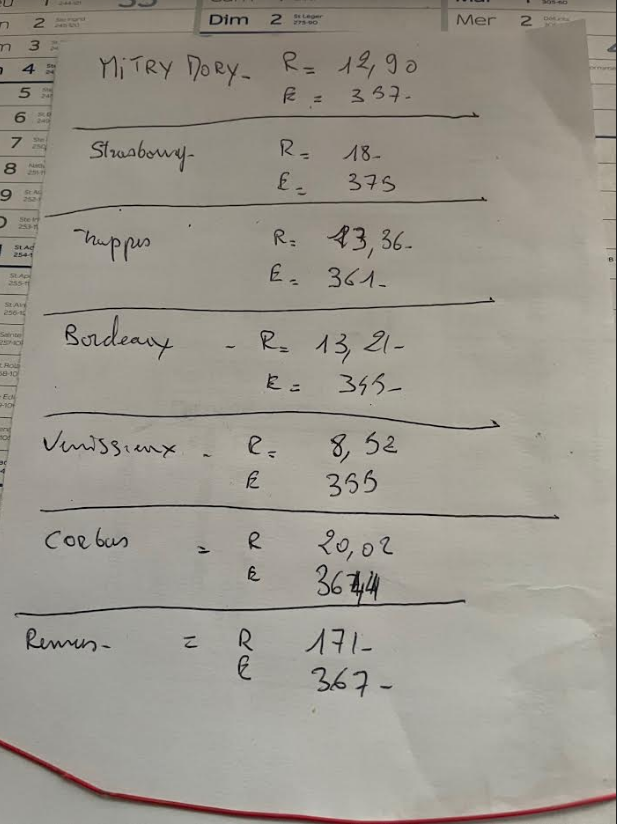 Dim 2 St Léger
275-90
Mer 2
2
3
4
5
6
7
8
9
MiTRY MORY - R = 12,90
E = 357-
Strasbourg - R = 18-
E = 375
Trappes R = 13,36-
E = 361-
Bordeaux - R = 13,21-
E = 355-
Venissieux - R = 8,52
E 355
Corbas = R 20,02
E
Rennes - = R 171-
E 367-